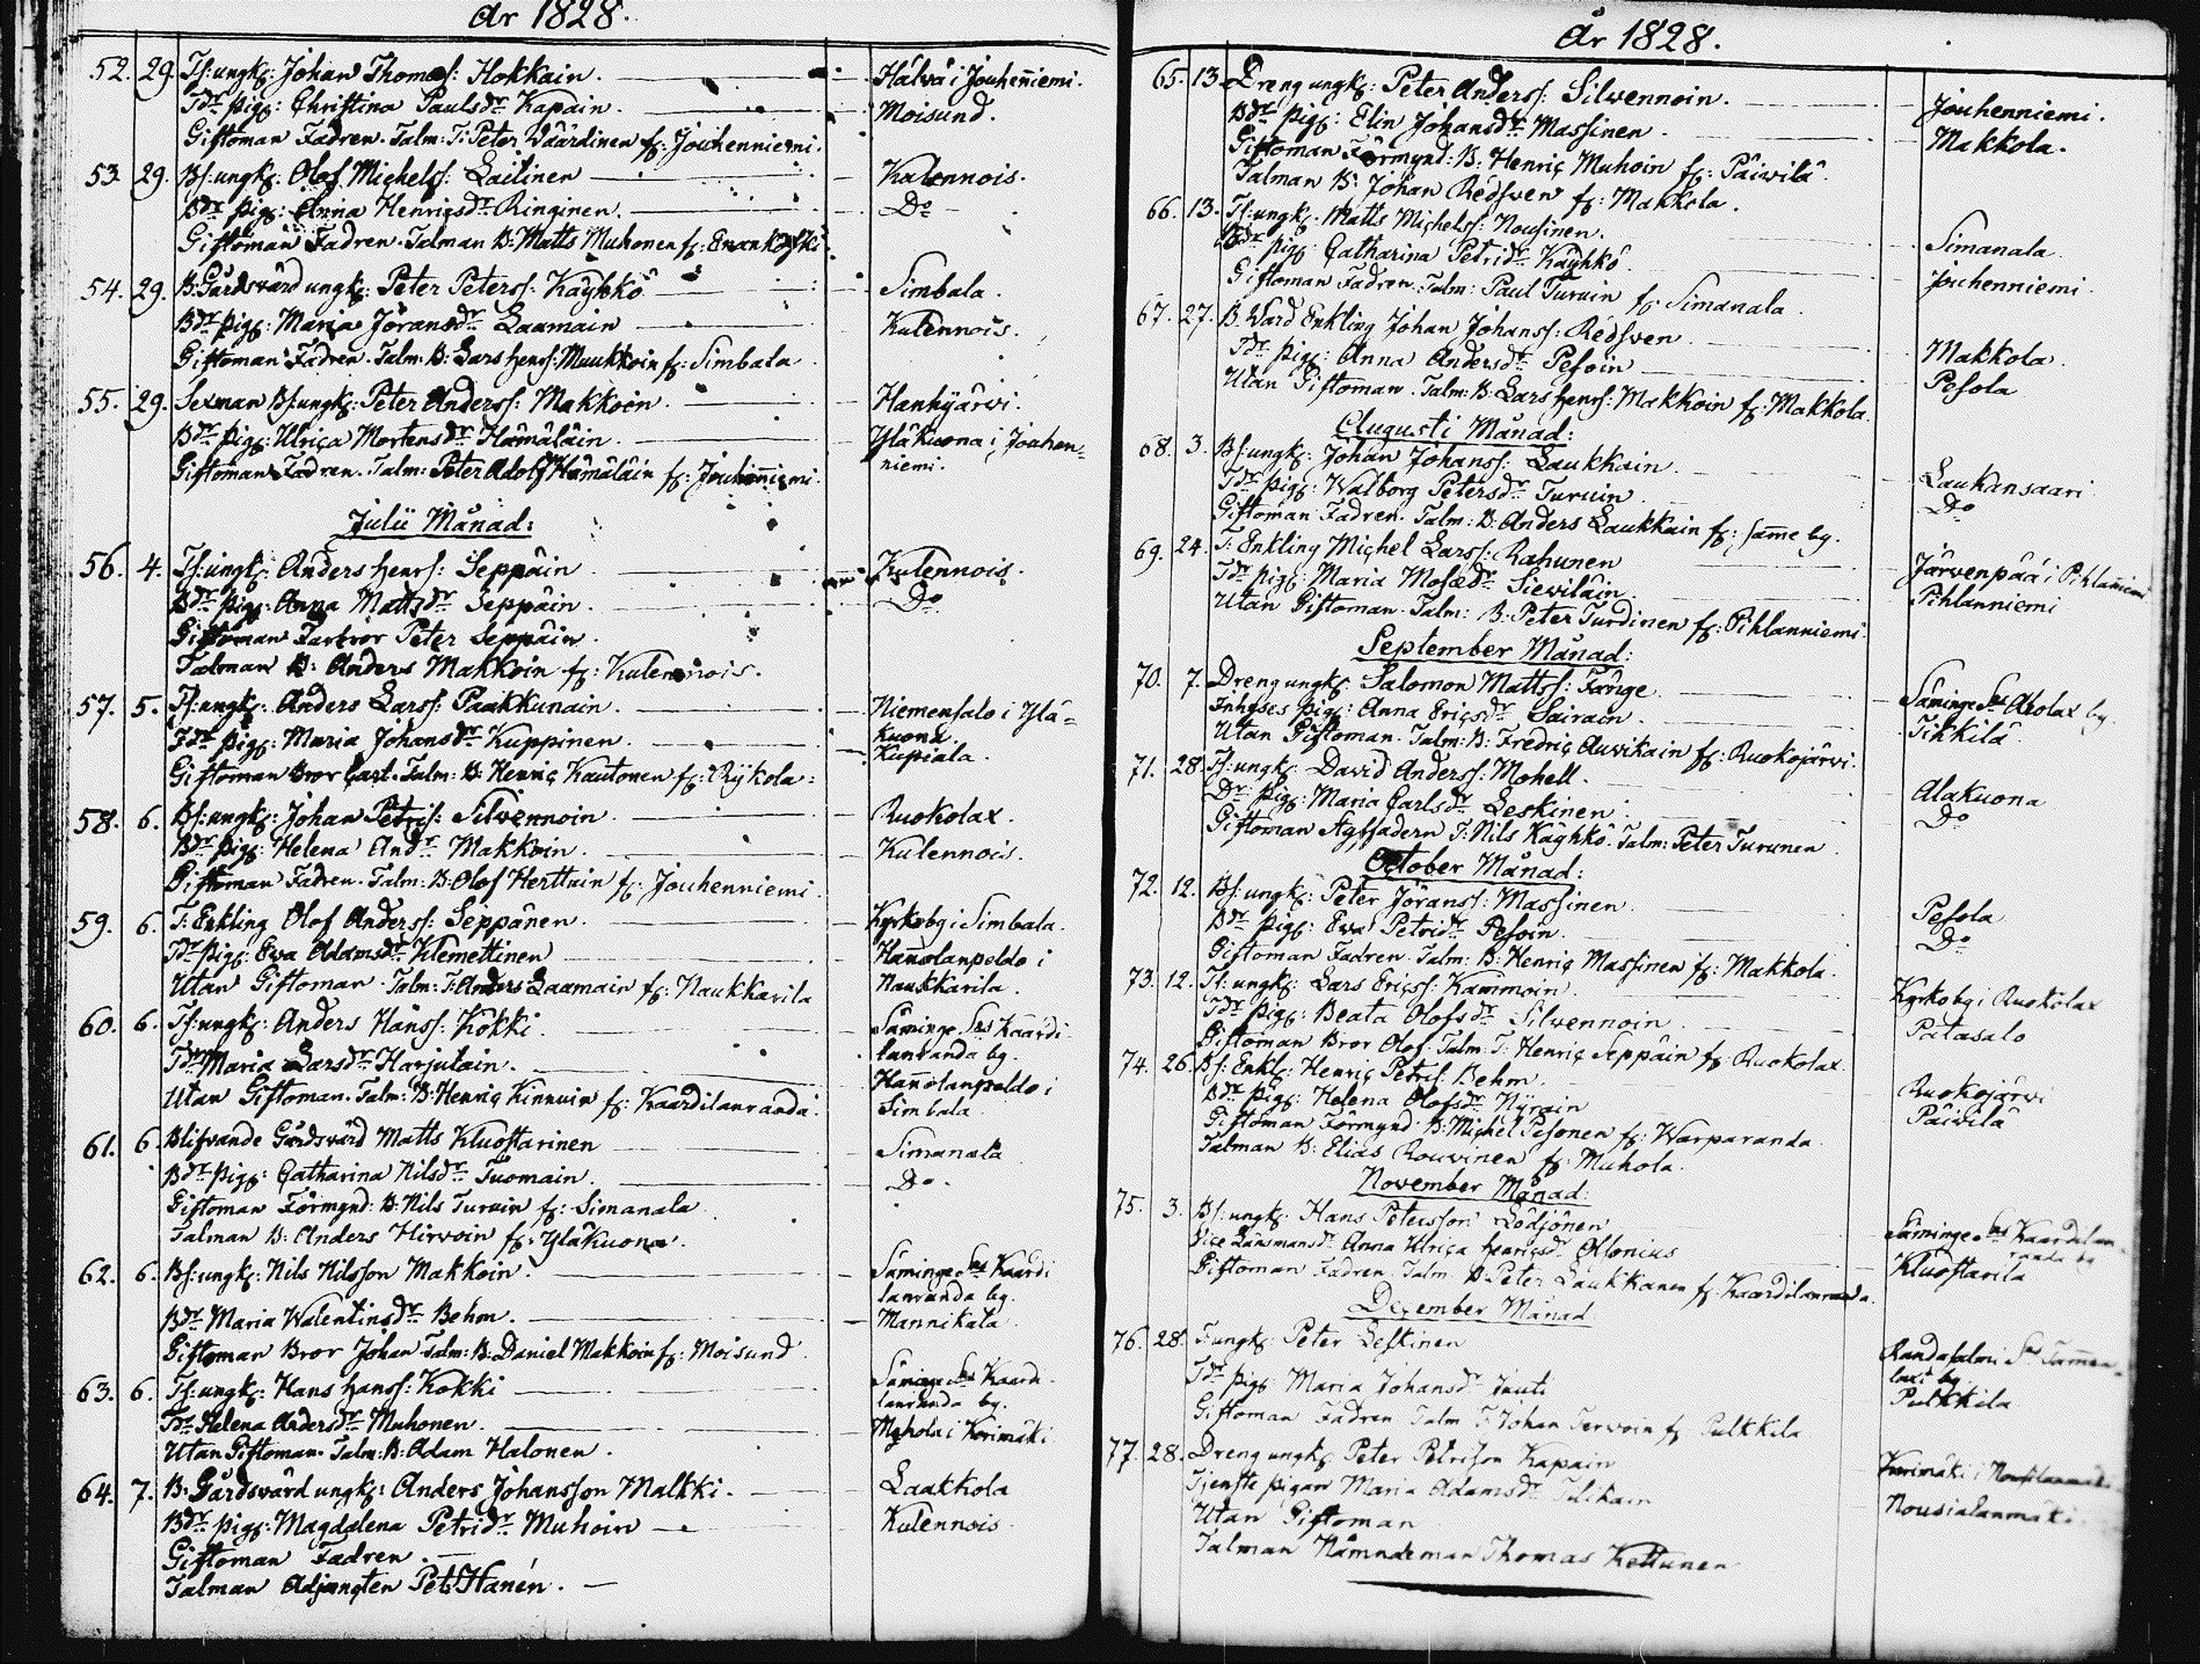 År 1828.
52. 29. Ts: ungk: Johan Thomæs: Hokkain. Hälvä i Jouhenniemi.
Tdr pig: Christina Paulsdr Kapain. Moisund.
Giftoman Fadren. Talm: T: Peter Väärdinen fr: Jouhenniemi.
53. 29. Bs: ungk: Olof Michels: Laitinen Kulennois.
Bdr pig: Anna Henricsdr Ringinen. Do
Giftoman Fadren. Talman B: Matts Muhonen fr: Enankoski
54. 29. B: Gårdsvärd ungk: Peter Peterss: Käyhkö Simbala.
Bdr pig: Maria Jöransdr Laamain Kulennois.
Giftoman Fadren. Talm: B: Lars Henrs: Muukkoin fr: Simbala
55. 29. Sexman Bs: ungk: Peter Anderss: Makkoin. Hanhijärvi.
Bdr pig: Ulrica Mortensdr Hämäläin. Yläkuona i Jouhen-
niemi.
Giftoman Fadren. Talm: Peter Adolf Hämäläin fr: Jouhenniemi.
Julii Månad:
56. 4. Ts: ungk: Anders Henrs: Seppäin Kulennois.
Bdr pig: Anna Mattsdr Seppäin. Do
Giftoman Farbror Peter Seppäin.
Talman B: Anders Makkoin fr: Kulennois.
57. 5. Ts: ungk: Anders Larss: Paakkunain. Niemensalo i Ylä-
kuona.
Tdr pig: Maria Johansdr Kuppinen. Kupiala.
Giftoman Bror Carl. Talm: B: Henric Kautonen fr: Rykola:
58. 6. Bs: ungk: Johan Petris: Silvennoin Ruokolax.
Bdr pig: Helena Andr Makkoin. Kulennois.
Giftoman Fadren. Talm: B: Olof Herttuin fr: Jouhenniemi.
59. 6. T: Enkling Olof Anderss: Seppänen. Kyrkobg i Simbala.
Tdr pig: Eva Adamsdr Klemettinen Hannolanpeldo i
Utan Giftoman. Talm: T: Anders Laamain fr: Naukkarila Naukkarila.
60. 6. Ts: ungk: Anders Hanss: Kokki. Säminge Sns Kaardi-
lanranda bg.
Tdr Maria Larsdr Harjulain. Hannolanpeldo i
Utan Giftoman. Talm: B: Henric Kinnuin fr: Kaardilanranda. Simbala
61. 6. Blifvande Gårdsvärd Matts Kluostarinen Simanala
Bdr pig: Catharina Nilsdr Tuomain. Do.
Giftoman Förmynd: B: Nils Turuin fr: Simanala
Talman B: Anders Hirvoin fr: Yläkuona.
62. 6. Bs: ungk: Nils Nilsson Makkoin. Säminge Sns Kaardi
lanranda bg.
Bdr Maria Walentinsdr Behm. Mannikala
Giftoman Bror Johan Talm: B: Daniel Makkoin fr: Moisund
63. 6. Ts: ungk: Hans Hanss: Kokki Säminge Sns Kaardi
lanranda bg.
Tdr Helena Andersdr Muhonen. Myhola i Kerimäki
Utan Giftoman. Talm: B: Adam Halonen.
64. 7. B: Gårdsvärd ungk: Anders Johansson Malkki. Laakkola
Bdr pig: Magdalena Petridr Muhoin Kulennois
Giftoman Fadren.
Talman Adjungten Pet: Hanén.
År 1828.
65. 13. Dreng ungk: Peter Anderss: Silvennoin. Jouhenniemi.
Bdr pig: Elin Johansdr Massinen. Makkola.
Giftoman Förmynd: B: Henric Muhoin fr: Päivilä.
Talman B: Johan Redsven fr: Makkola.
66. 13. Ts: ungk. Matts Michelss: Nousinen. Simanala
Bdr pig: Catharina Petridr Käyhkö. Jouhenniemi.
Giftoman Fadren. Talm: Paul Turuin fr: Simanala.
67. 27. B: Värd Enkling Johan Johanss: Redsven Makkola.
Tdr pig: Anna Andersdr Pesoin Pesola
Utan Giftoman. Talm: B: Lars Henrs: Makkoin fr: Makkola.
Augusti Månad:
68. 3. Bs: ungk: Johan Johanss: Laukkain. Laukansaari
Tdr pig: Walborg Petersdr Turuin. Do
Giftoman Fadren. Talm: B: Anders Laukkain fr: samme bg.
69. 24. T: Enkling Michel Larss: Rahunen Järvenpää i Pihlanniemi
Tdr pig: Maria Mosædr Sieviläin. Pihlanniemi
Utan Giftoman. Talm: B: Peter Turdinen fr: Pihlanniemi.
September Månad:
70. 7. Dreng ungk: Salomon Mattss: Fånge. Säminge Sns Aholax bg
Inhyses pig: Anna Ericsdr Sairain. Tikkilä
Utan Giftoman. Talm: B: Fredric Auvikain fr: Ruokojärvi.
71. 28. Ts: ungk: David Anderss: Mohell. Alakuona
Dr: pig: Maria Carlsdr Leskinen. Do
Giftoman Styffadern T: Nils Käyhkö. Talm: Peter Turunen
October Månad:
72. 12. Bs: ungk: Peter Jöranss: Massinen. Pesola
Bdr pig: Eva Petridr Pesoin. Do
Giftoman Fadren. Talm: B: Henric Massinen fr: Makkola.
73. 12. Ts: ungk: Lars Ericss: Kammoin. Kyrkobg i Ruokolax
Tdr pig: Beata Olofsdr Silvennoin Patasalo
Giftoman Bror Olof. Talm: T: Henric Seppäin fr: Ruokolax.
74. 26. Bs: Enkl: Henric Petris: Behm. Ruokojärvi
Bdr pig: Helena Olofsdr Nyrain Päivilä
Giftoman Förmynd: B: Michel Pesonen fr: Warparanda.
Talman B: Elias Rouvinen fr: Muhola.
November Månad:
75. 3. Bs: ungk: Hans Petersson Lödjönen Säminge Sns Kaardilan
randa bg
Vice Länsmansdr Anna Ulrica Henricsdr Ollonius Kluostarila
Giftoman Fadren. Talm B: Peter Laukkanen fr: Kaardilanranda.
December Månad
76. 28. T: ungk: Peter Leskinen Randasalmi Sn
laxi bg
Tdr pig: Maria Johansdr Juuti Pulkkila
Giftoman Fadren Talm T: Johan Tervoin fr: Pulkkila
77. 28. Dreng ungk: Peter Petrisson Kapain Kerimäki i Nousialanmäki
Tjenste pigan Maria Adamsdr Nousialanmäki
Utan Giftoman
Talman Nämndeman Thomas Kettunen